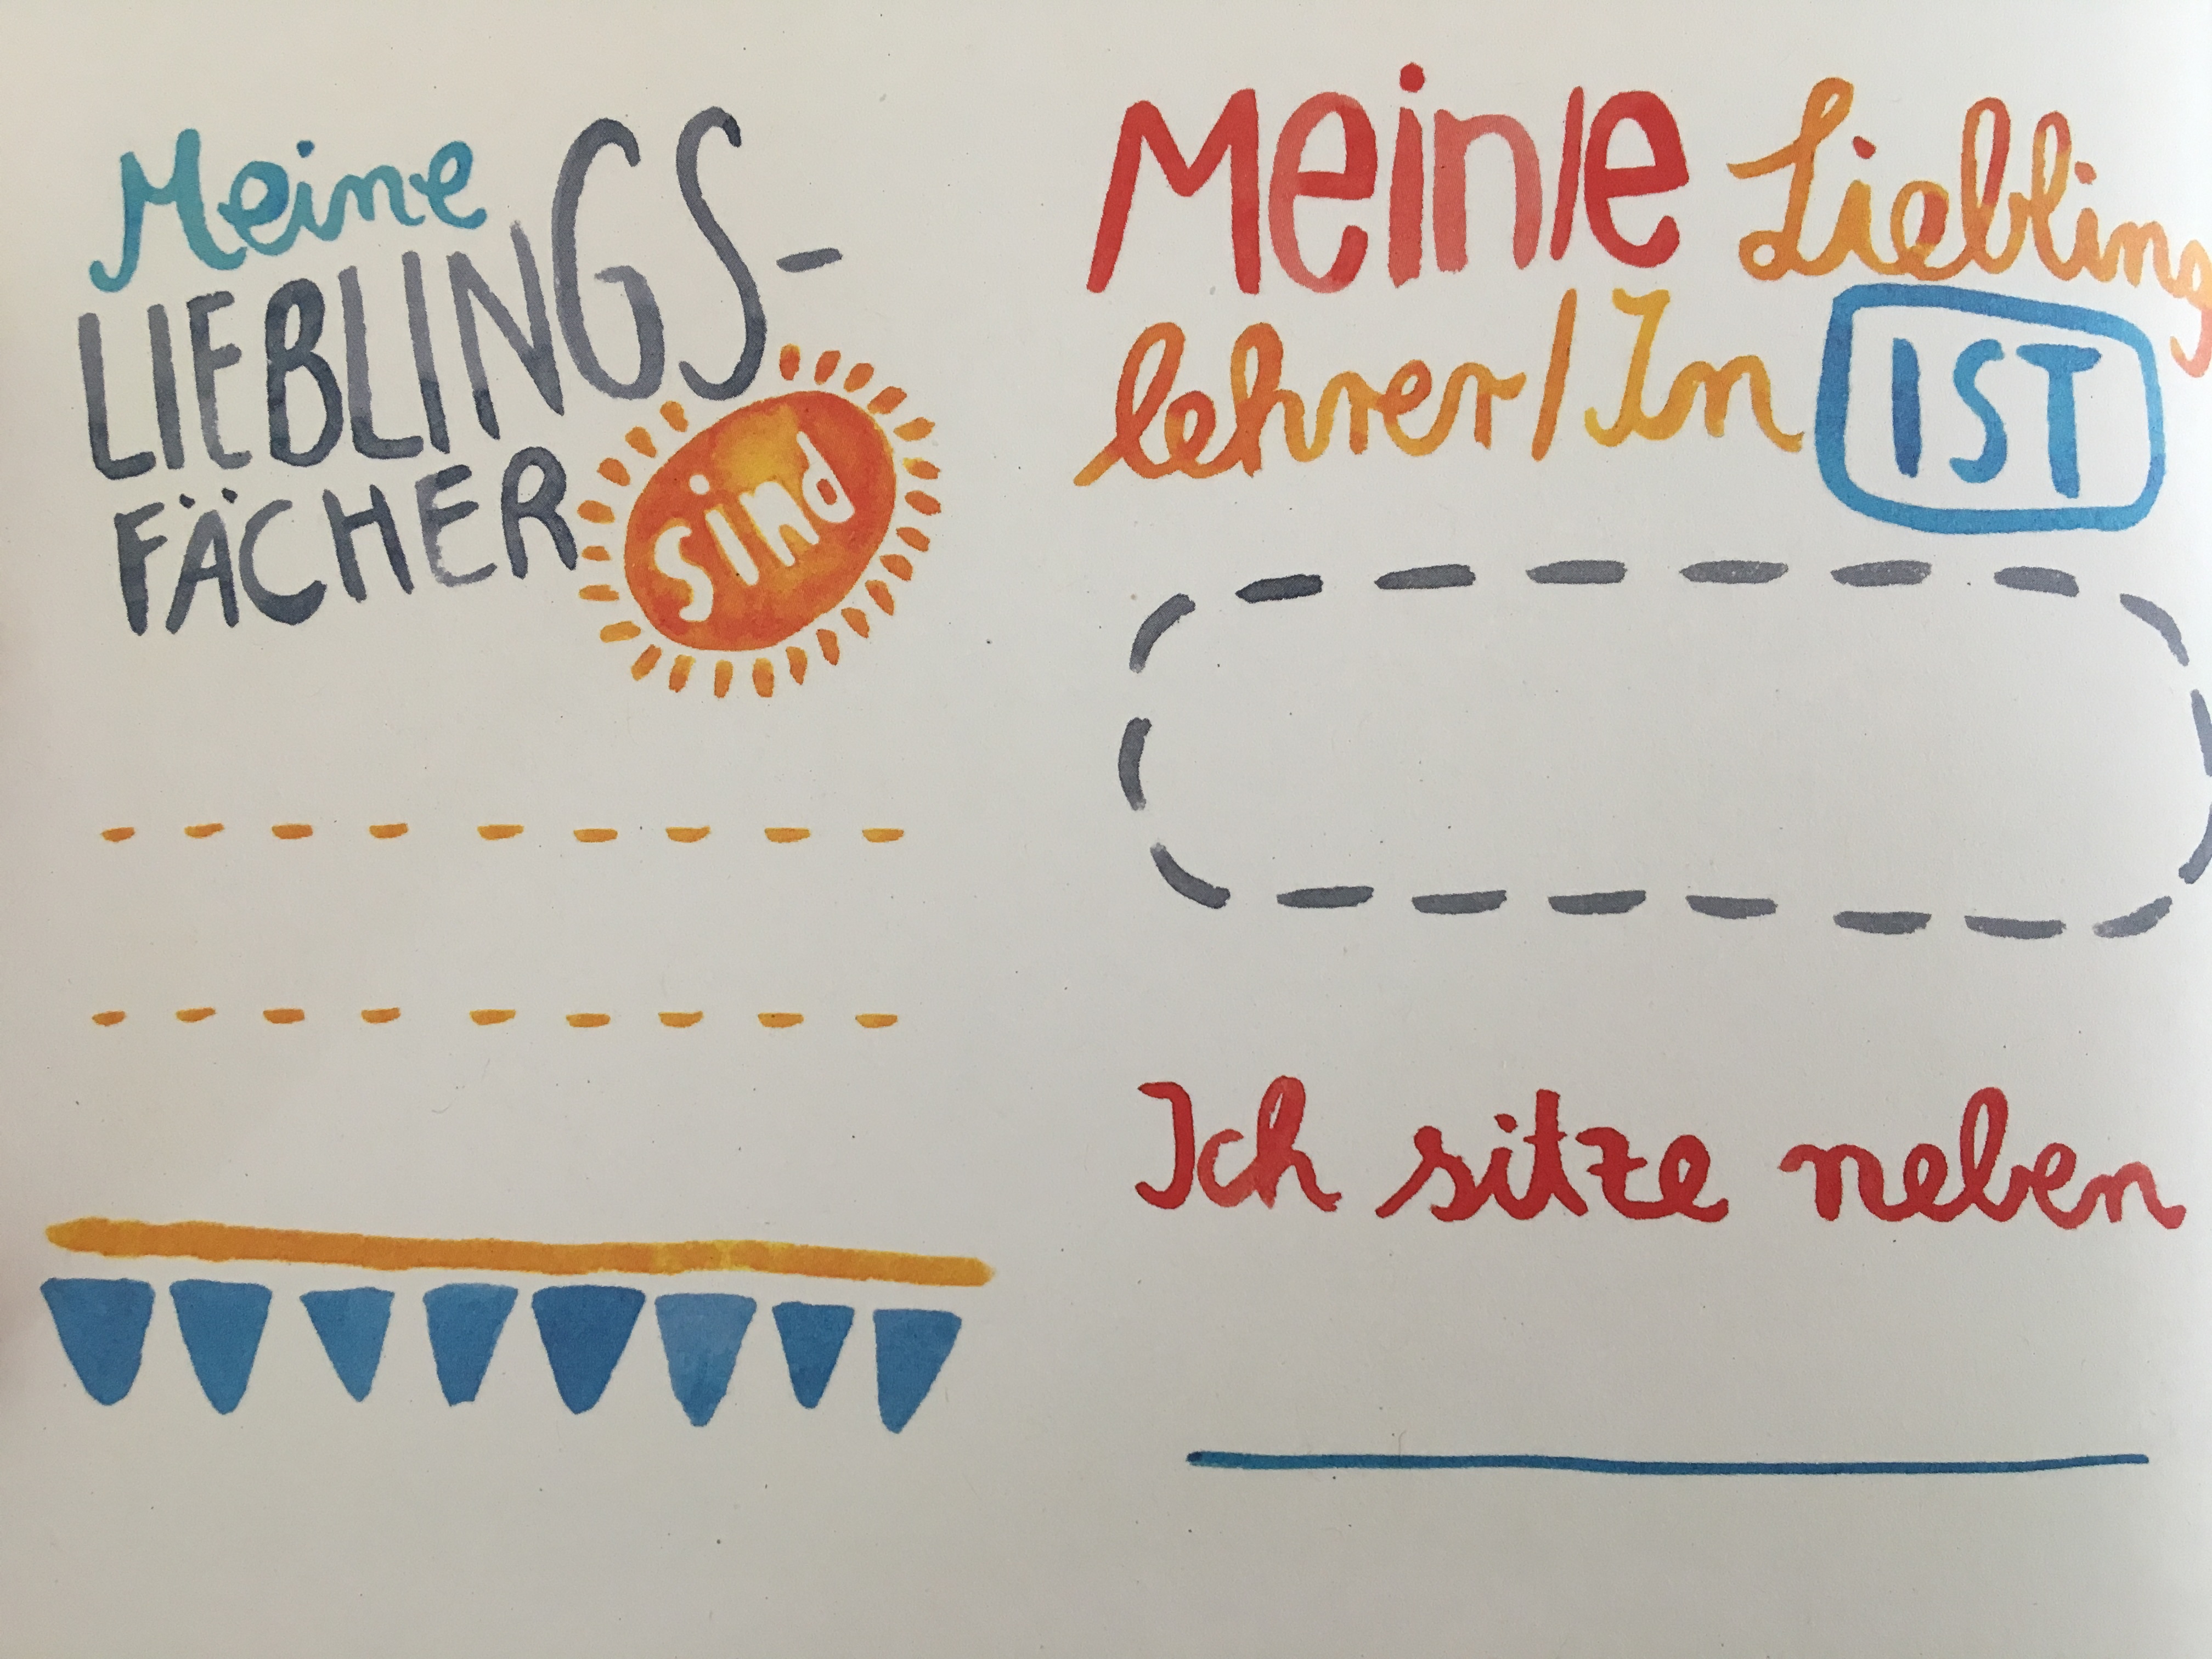 Meine
LIEBLINGS-
FÄCHER sind
Mein/e Liebling
lehrer/In IST
Ich sitze neben